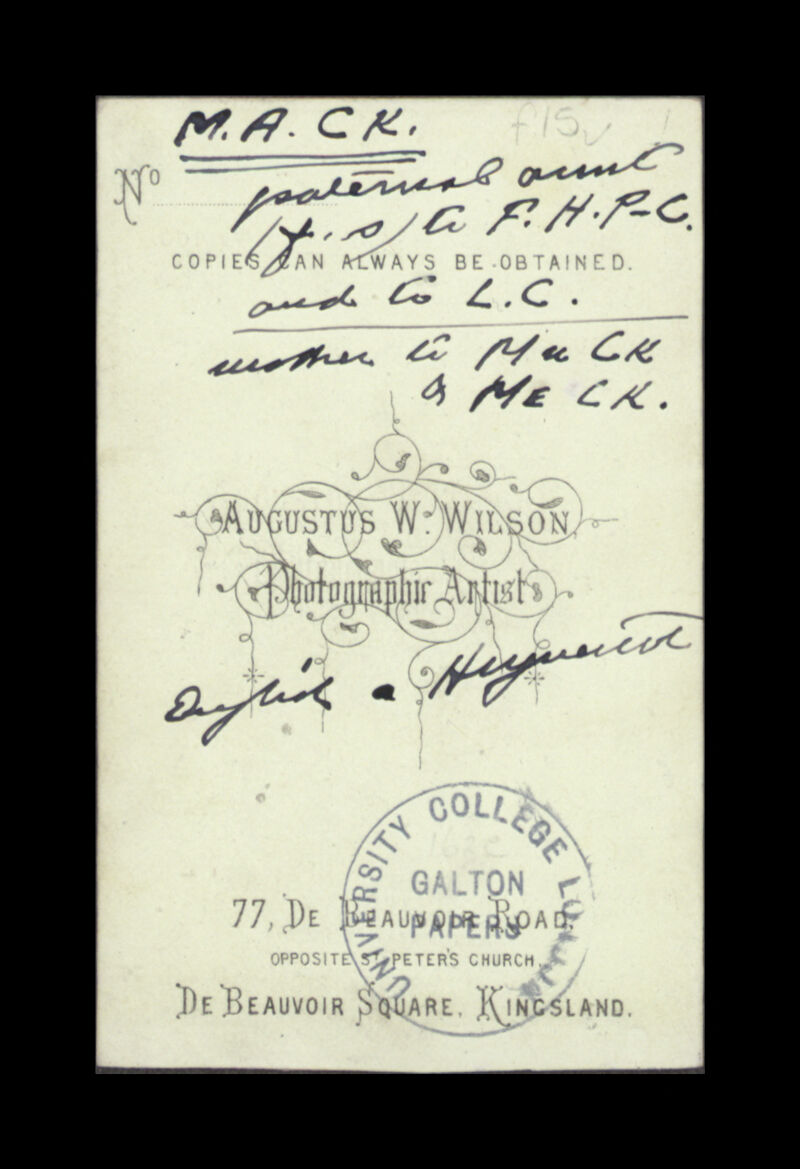 M.A. CK.
f15v
No
paternal aunt
(f. s) to F.H.P-C.
COPIES CAN ALWAYS BE OBTAINED.
and to L.C.
mother to Mu CK
& ME CK.
AUGUSTUS W. WILSON,
Photographic Artist
English a
UNIVERSITY COLLEGE LONDON
GALTON
PAPERS
77, DE BEAUVOIR ROAD,
OPPOSITE ST PETER'S CHURCH,
DE BEAUVOIR SQUARE, KINGSLAND.